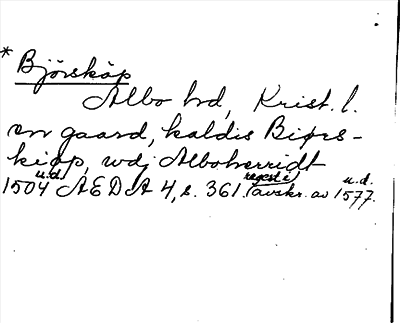 * Björsköp
Albo hd, Krist. l.
en gaard, kaldis Biørs-
kiøp, udj Alboherridt
1504 u.d. AEDA 4, s. 361. (regest i avskr. av 1577. u.d.